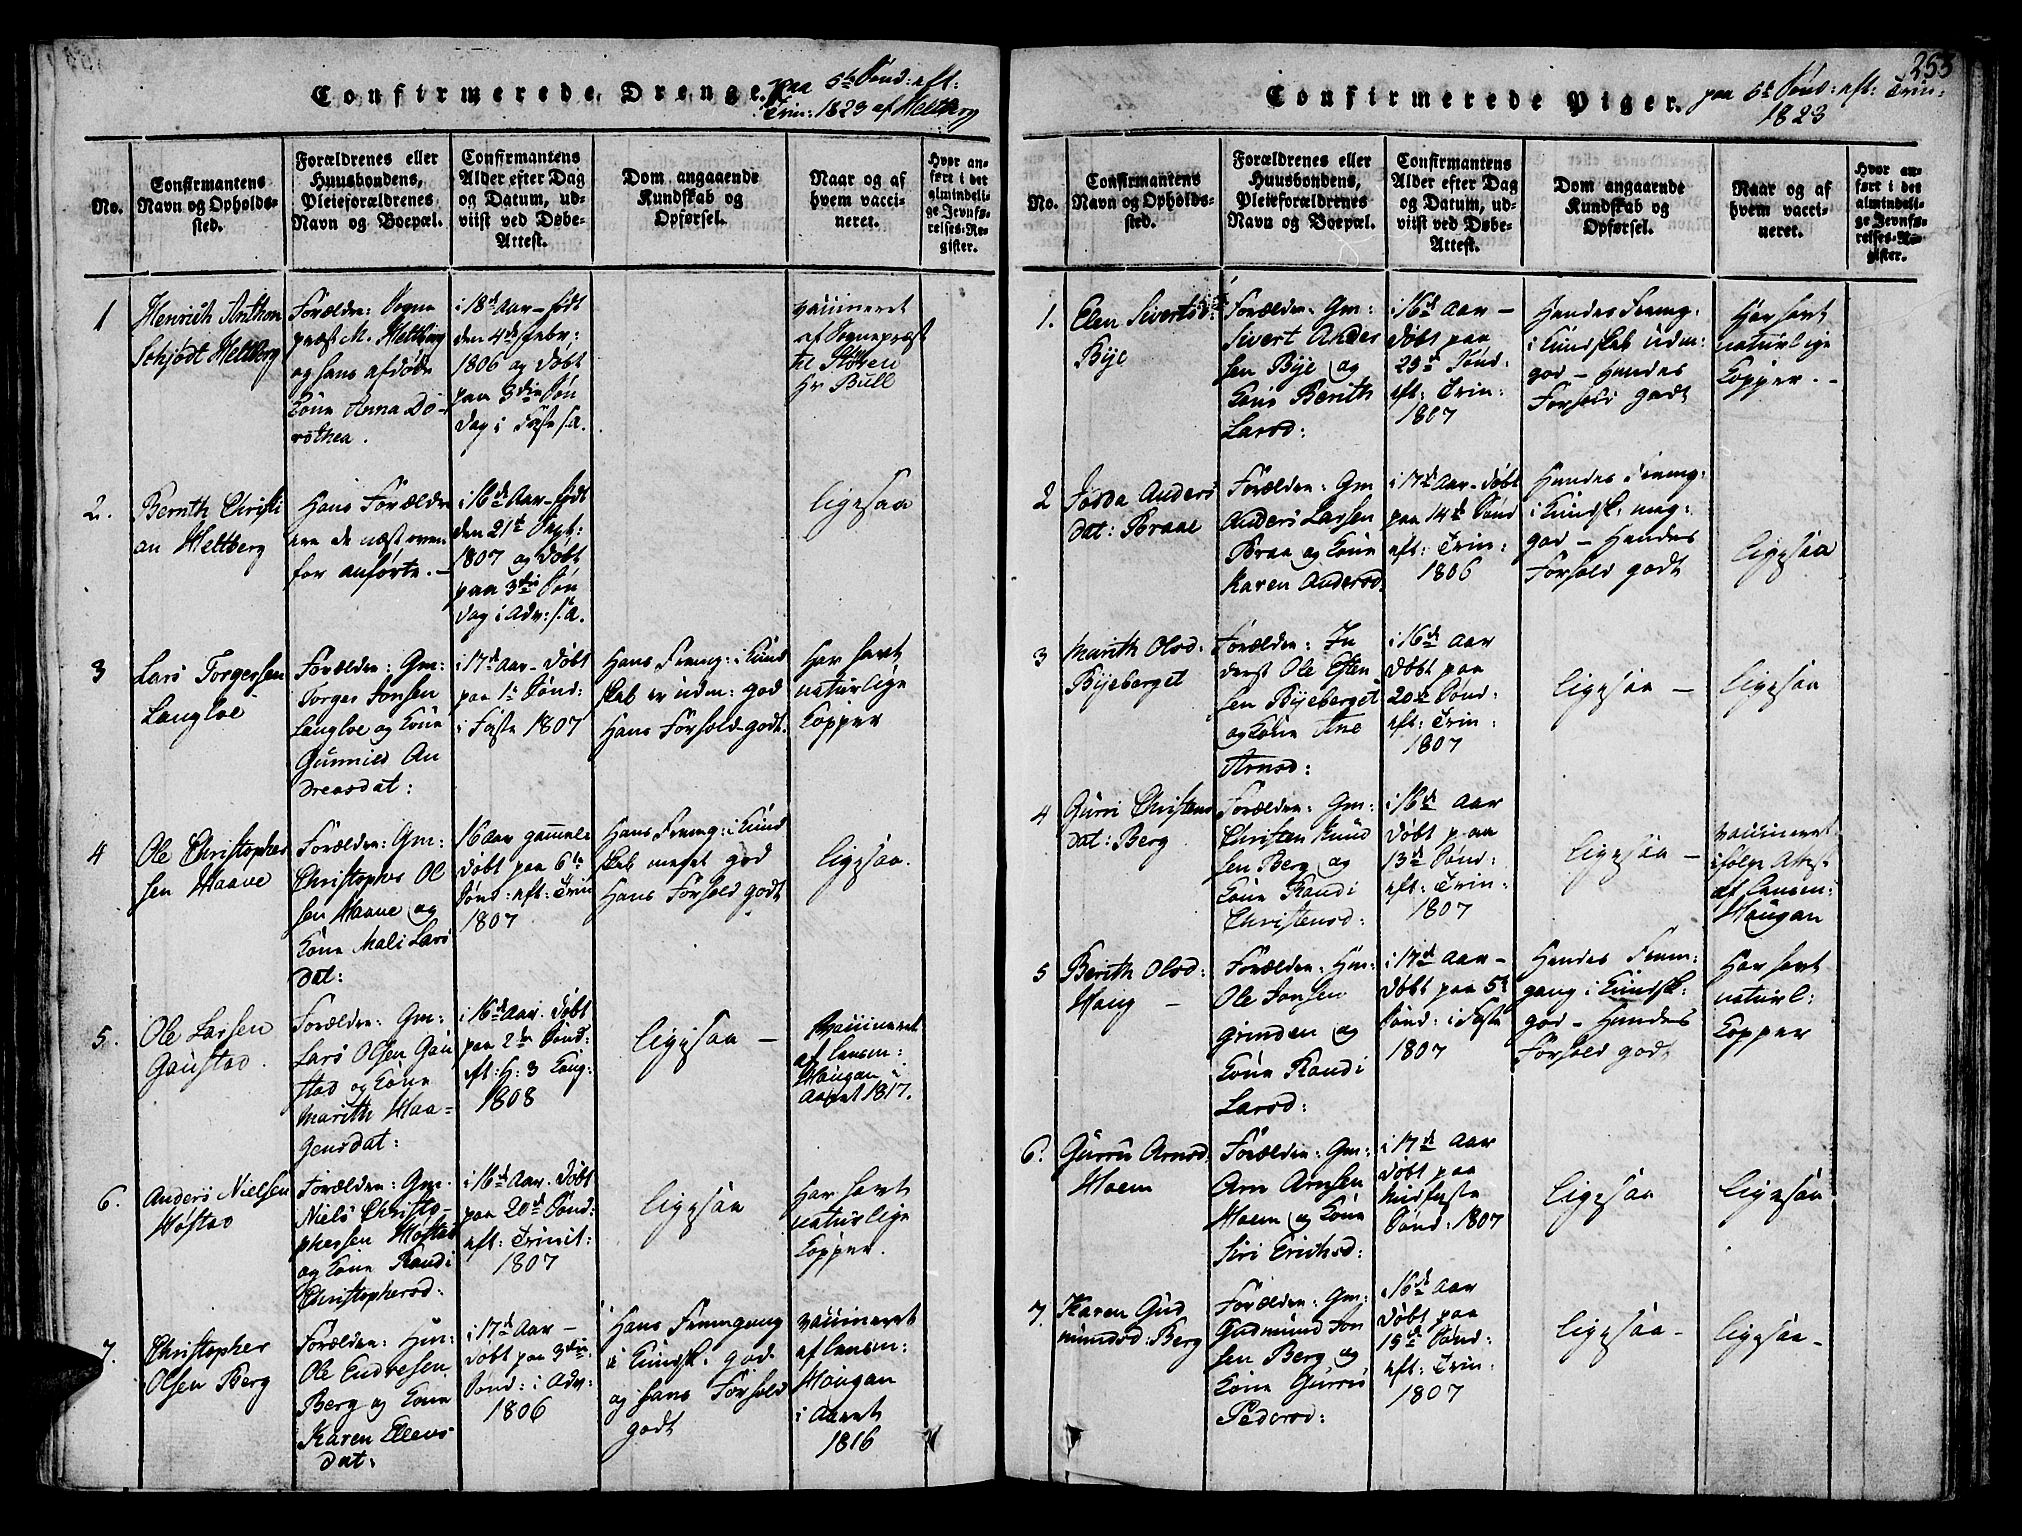 253
Confirmerede Drenge. paa 5te Sønd: eft:
Trin: 1823 af Heltberg
No.
Confirmantens
Navn og Opholds-
sted.
Forældrenes eller
Huusbondens,
Pleieforældrenes
Navn og Boepæl.
Confirmantens
Alder efter Dag
og Datum, ud-
viist ved Døbe-
Attest.
Dom angaaende
Kundskab og
Opførsel.
Naar og af
hvem vacci-
neret.
Hvor an-
ført i det
almindeli-
ge Jevnfø-
relses-Re-
gister.
1
Henrich Anthon
Schjødt Heltberg
Forældre: Sogne
præst M. Heltberg
og hans afdøde
Kone Anna Do-
rothea.
i 18de Aar – født
den 4de Febr:
1806 og døbt
paa 3die Søn
dag i Faste s. a.
vaccineret
af Sognepræst
til Støren
Hr Bull
2.
Bernth Christi
an Heltberg
Hans Forældre
ere de næst oven
for anførte. –
i 16de Aar – født
den 21de Sept:
1807 og døbt
paa 3die Søn
dag i Adv: s. a.
ligesaa
3
Lars Torgersen
Langløe
Forældre: Gm:
Torger Jonsen
Langløe og Kone
Gunnild An
dreasdat:
i 17de Aar – døbt
paa 1te Sønd:
i Faste 1807
Hans Fremg: i Kund
skab er udm: god
Hans Forhold godt.
Har havt
naturlige
Kopper
4
Ole Christopher
sen Haave
Forældre: Gm:
Christopher Ol
sen Haave og
Kone Mali Lars
dat:
16 Aar gammel
døbt paa 6te
Sønd: eft: Trin
1807
Hans Fremg: i Kund
skab meget god
Hans Forhold godt
ligesaa.
5.
Ole Larsen
Gaustad.
Forældre: Gm:
Lars Olsen Gau
stad og Kone
Marith Haa-
gensdat:
i 16de Aar. døbt
paa 2den Sønd:
eft: H: 3 Kong:
1808
ligesaa –
Vaccineret
af Lensm:
Haugan
Aaret 1817.
6.
Anders Nielsen
Høstad
Forældre: Gm.
Niels Christo-
phersen Høstad
og Kone Randi
Christophersd:
i 16de Aar. døbt
paa 20de Sønd:
eft: Trinit:
1807
ligesaa
Har havt
naturlige
Kopper.
7.
Christopher
Olsen Berg
Forældre: Hm:
Ole Endresen
Berg og Kone
Karen Ellevs
dat:
i 17de Aar –
døbt paa 3die
Sønd: i Adv:
1806
Hans Fremgang
i Kundsk: god
og hans Forhold
godt
vaccineret
af Lensm:
Haugan
i Aaret
1816
Confirmerede Piger. paa 5te Sønd: eft: Trin:
1823
No.
Confirmantens
Navn og Opholds-
sted.
Forældrenes eller
Huusbondens,
Pleieforældrenes
Navn og Boepæl.
Confirmantens
Alder efter Dag
og Datum, ud-
viist ved Døbe-
Attest.
Dom angaaende
Kundskab og
Opførsel.
Naar og af
hvem vacci-
neret.
Hvor an-
ført i det
almindeli-
ge Jevnfø-
relses-Re-
gister.
1.
Elen Sivertsd:
Bye
Forældre: Gm:
Sivert Anders
sen Bye og
Kone Berith
Larsd:
i 16de Aar –
døbt paa
25de Sønd:
eft: Trin:
1807
Hendes Fremg:
i Kundskab udm:
god – Hendes
Forhold godt
Har havt
naturlige
Kopper. –
2
Anders
dat: Braae
Forældre: Gm
Anders Larsen
Braa og Kone
Karen Andersd.
i 17de Aar – døbt
paa 14de Sønd
eft: Trin:
1806
Hendes Fremg:
i Kundsk: meg:
god – Hendes
Forhold godt
ligesaa
3
Marith Olsd:
Byeberget
Forældre: In
derst Ole Esten
sen Byeberget
og Kone Ane
Arnsd:
i 16de Aar
døbt paa
20de Sønd:
eft: Trin:
1807
ligesaa –
ligesaa
4
Gurri Christens
dat: Berg
Forældre: Gm:
Christen Knud
sen Berg og
Kone Randi
Christensd:
i 16de Aar
døbt paa
13de Sønd:
eft: Trin:
1807
ligesaa –
vaccineret
ifølge Attest
af Lensm:
Haugan
5
Berith Olsd:
Haug –
Forældre: Hm:
Ole Jonsen
Grinden og
Kone Randi
Larsd:
i 17de Aar –
døbt paa 5te
Sønd: i Faste
1807
Hendes Frem
gang i Kundsk:
god – Hendes
Forhold godt
Har havt
naturl:
Kopper
6.
Gurru Arnsd.
Moem
Forældre: Gm:
Arn Arnsen
Moem og Kone
Siri Erichsd:
i 17de Aar
døbt paa
Midfaste
Sønd: 1807
ligesaa
ligesaa
7.
Karen Gud
mundsd. Berg
Forældre: Gm:
Gudmund Jon
sen Berg og
Kone Gurru
Pedersd:
i 16de Aar
døbt paa
15de Sønd:
eft: Trin:
1807
ligesaa –
ligesaa –